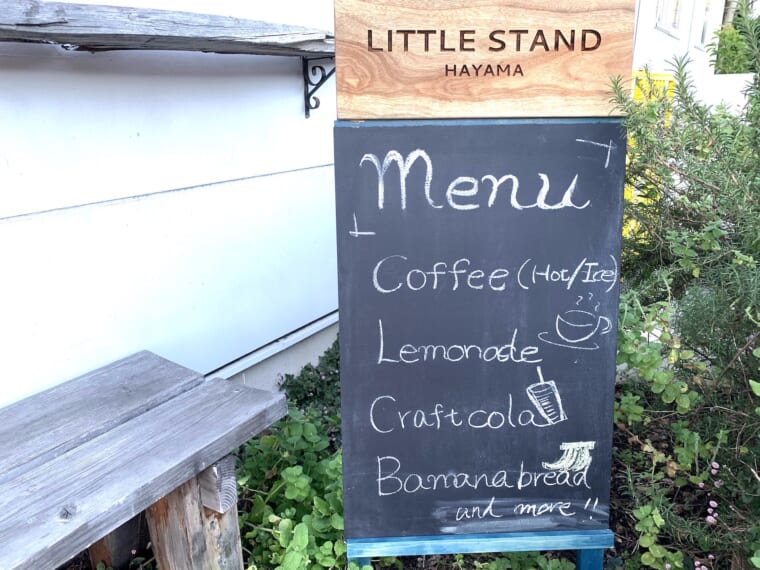 LITTLE STAND
HAYAMA
Menu
Coffee (Hot/Ice)
Lemonade
Craft cola
Bamana bread
and more!!